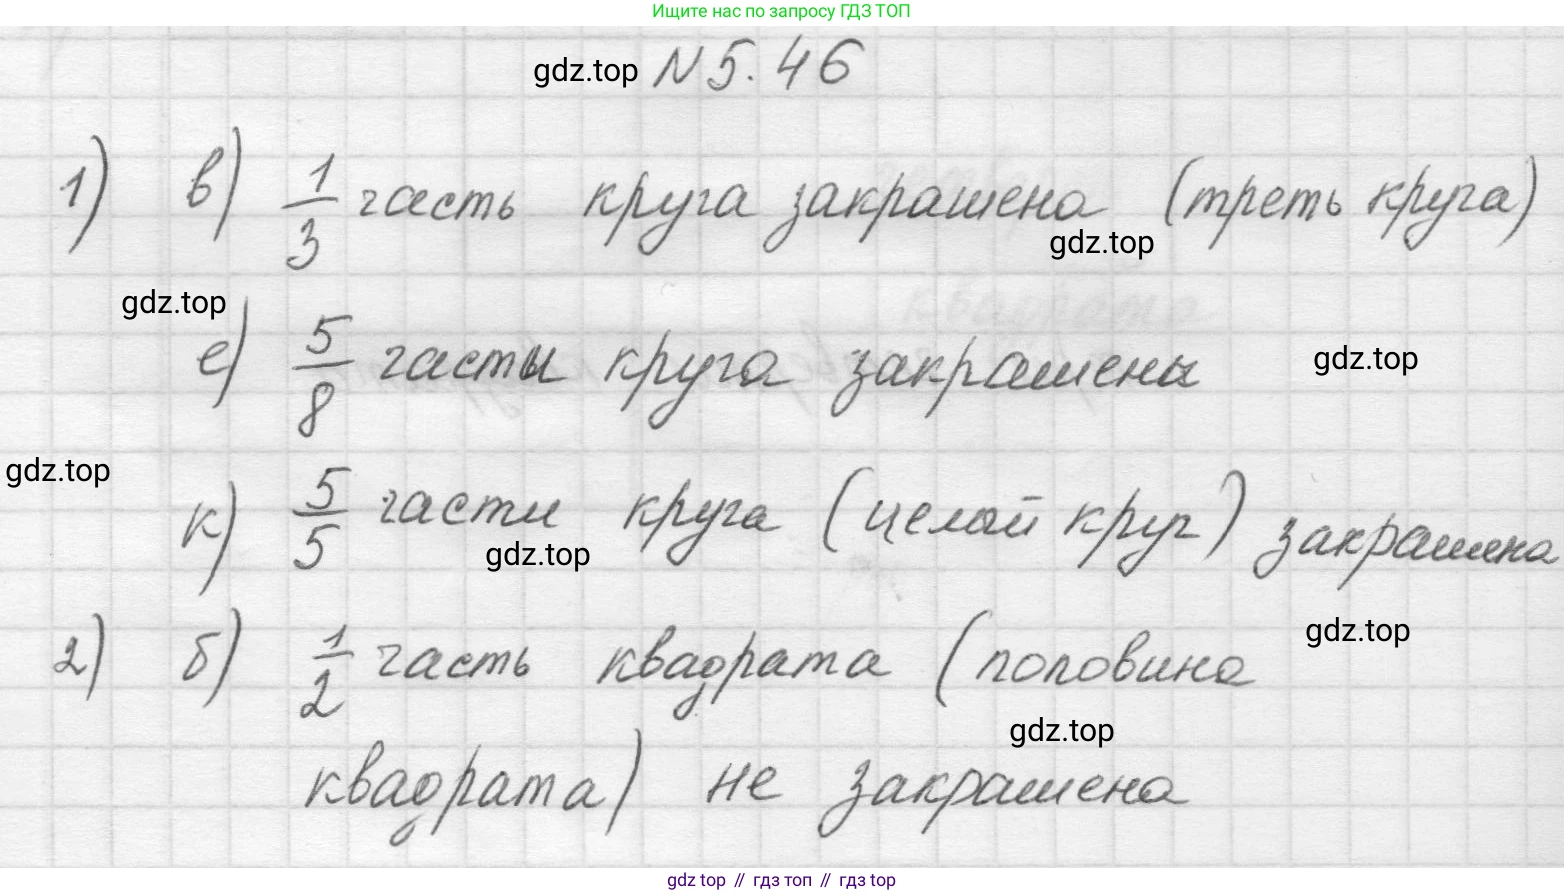 Ищите нас по запросу ГДЗ ТОП
gdz.top N 5.46
1) в) 1/3 часть круга закрашена (треть круга)
gdz.top
gdz.top
е) 5/8 часты круга закрашены
gdz.top
gdz.top
к) 5/5 части круга (целый круг) закрашена
gdz.top
2) б) 1/2 часть квадрата (половина
gdz.top
gdz.top
квадрата) не закрашена
gdz.top // гдз топ // гдз top